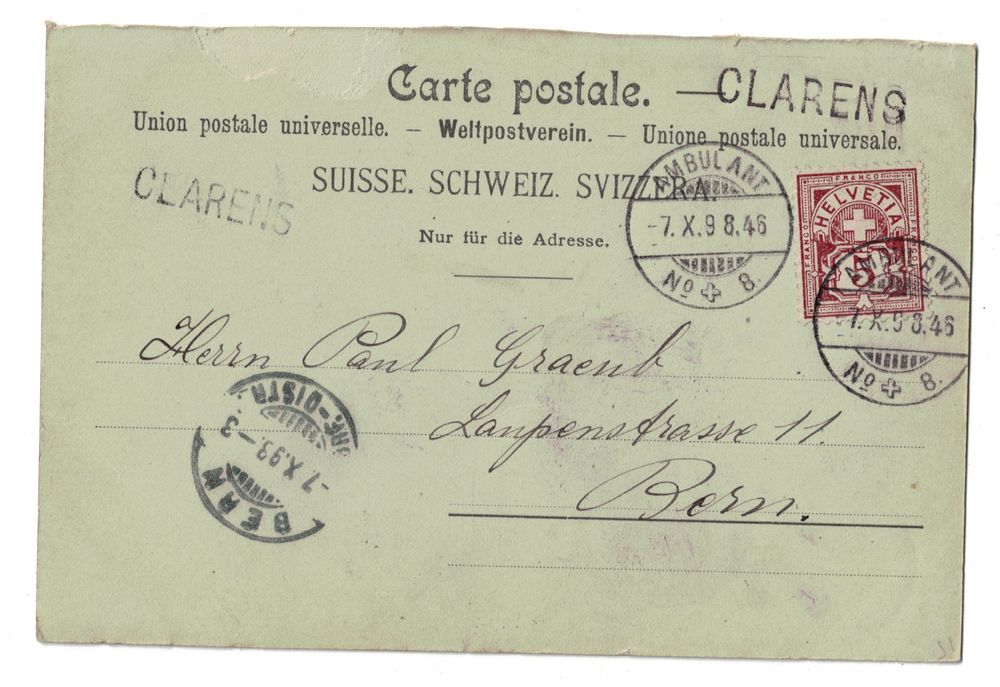 Carte postale. — CLARENS
Union postale universelle. – Weltpostverein. – Unione postale universale.
CLARENS
SUISSE. SCHWEIZ. SVIZZERA.
Nur für die Adresse.
AMBULANT
-7.X.9 8.46
No 8.
FRANCO
FRANCO
FRANCO
HELVETIA
5
AMBULANT
-7.X.9 8.46
No 8.
Herrn Paul Graeub
Laupenstrasse 11.
Bern.
BERN
-7.X.93.-3
BRF.-DISTR